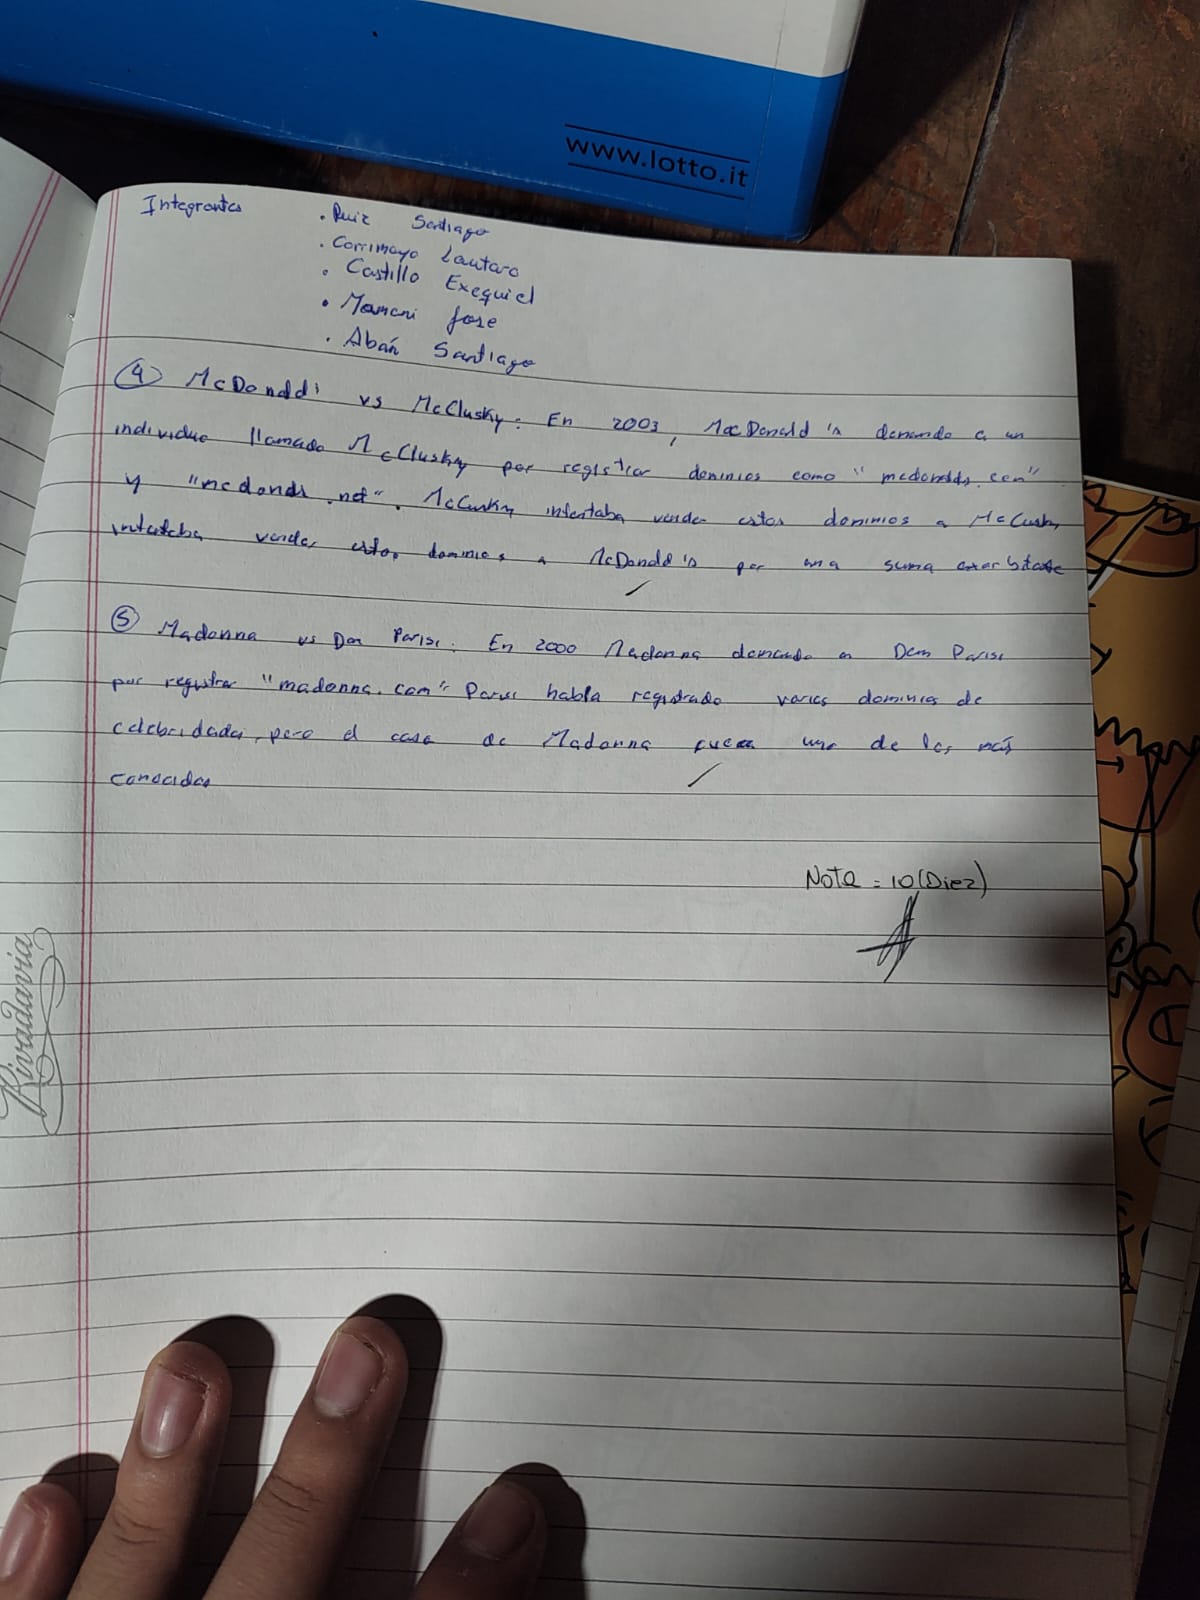 www.lotto.it
Integrantes
. Ruiz Santiago
. Corrimayo Lautaro
. Castillo Exequiel
. Mamani Jose
. Abán Santiago
4 McDonald's vs McClusky: En 2003, MacDonald's demando a un
individuo llamado McClusky por registrar dominios como "mcdonalds.com"
y "mcdonds.net". McClusky intentaba vender estos dominios a McClusky
intentaba vender estos dominios a McDonald's por una suma
5 Madonna vs Dan Parisi: En 2000 Madonna demando a Dam Parisi
por registrar "madonna.com" Parisi habla registrado varios dominios de
celebridades, pero el caso de Madonna uno de los más
conocidos
Nota = 10 (Diez)
Rivadavia